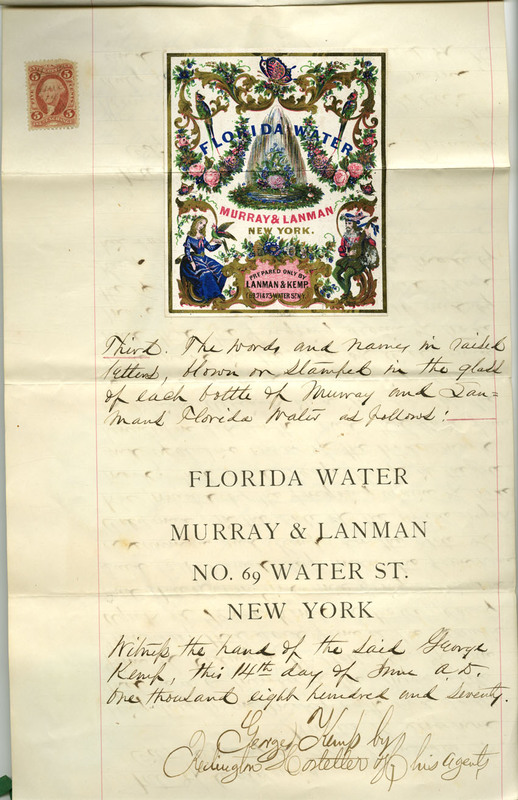 5 5
FLORIDA WATER
MURRAY & LANMAN
NEW YORK.
PREPARED ONLY BY
LANMAN & KEMP.
69, 71 & 73 WATER ST. N.Y.
Third. The words and names in raised
letters, blown or stamped in the glass
of each bottle of Murray and Lan=
mans Florida Water as follows:
FLORIDA WATER
MURRAY & LANMAN
NO. 69 WATER ST.
NEW YORK
Witness the hand of the said George
Kemp, this 14th day of June A.D.
one thousand eight hundred and seventy.
George Kemp by
Redington Hostetter of his agents